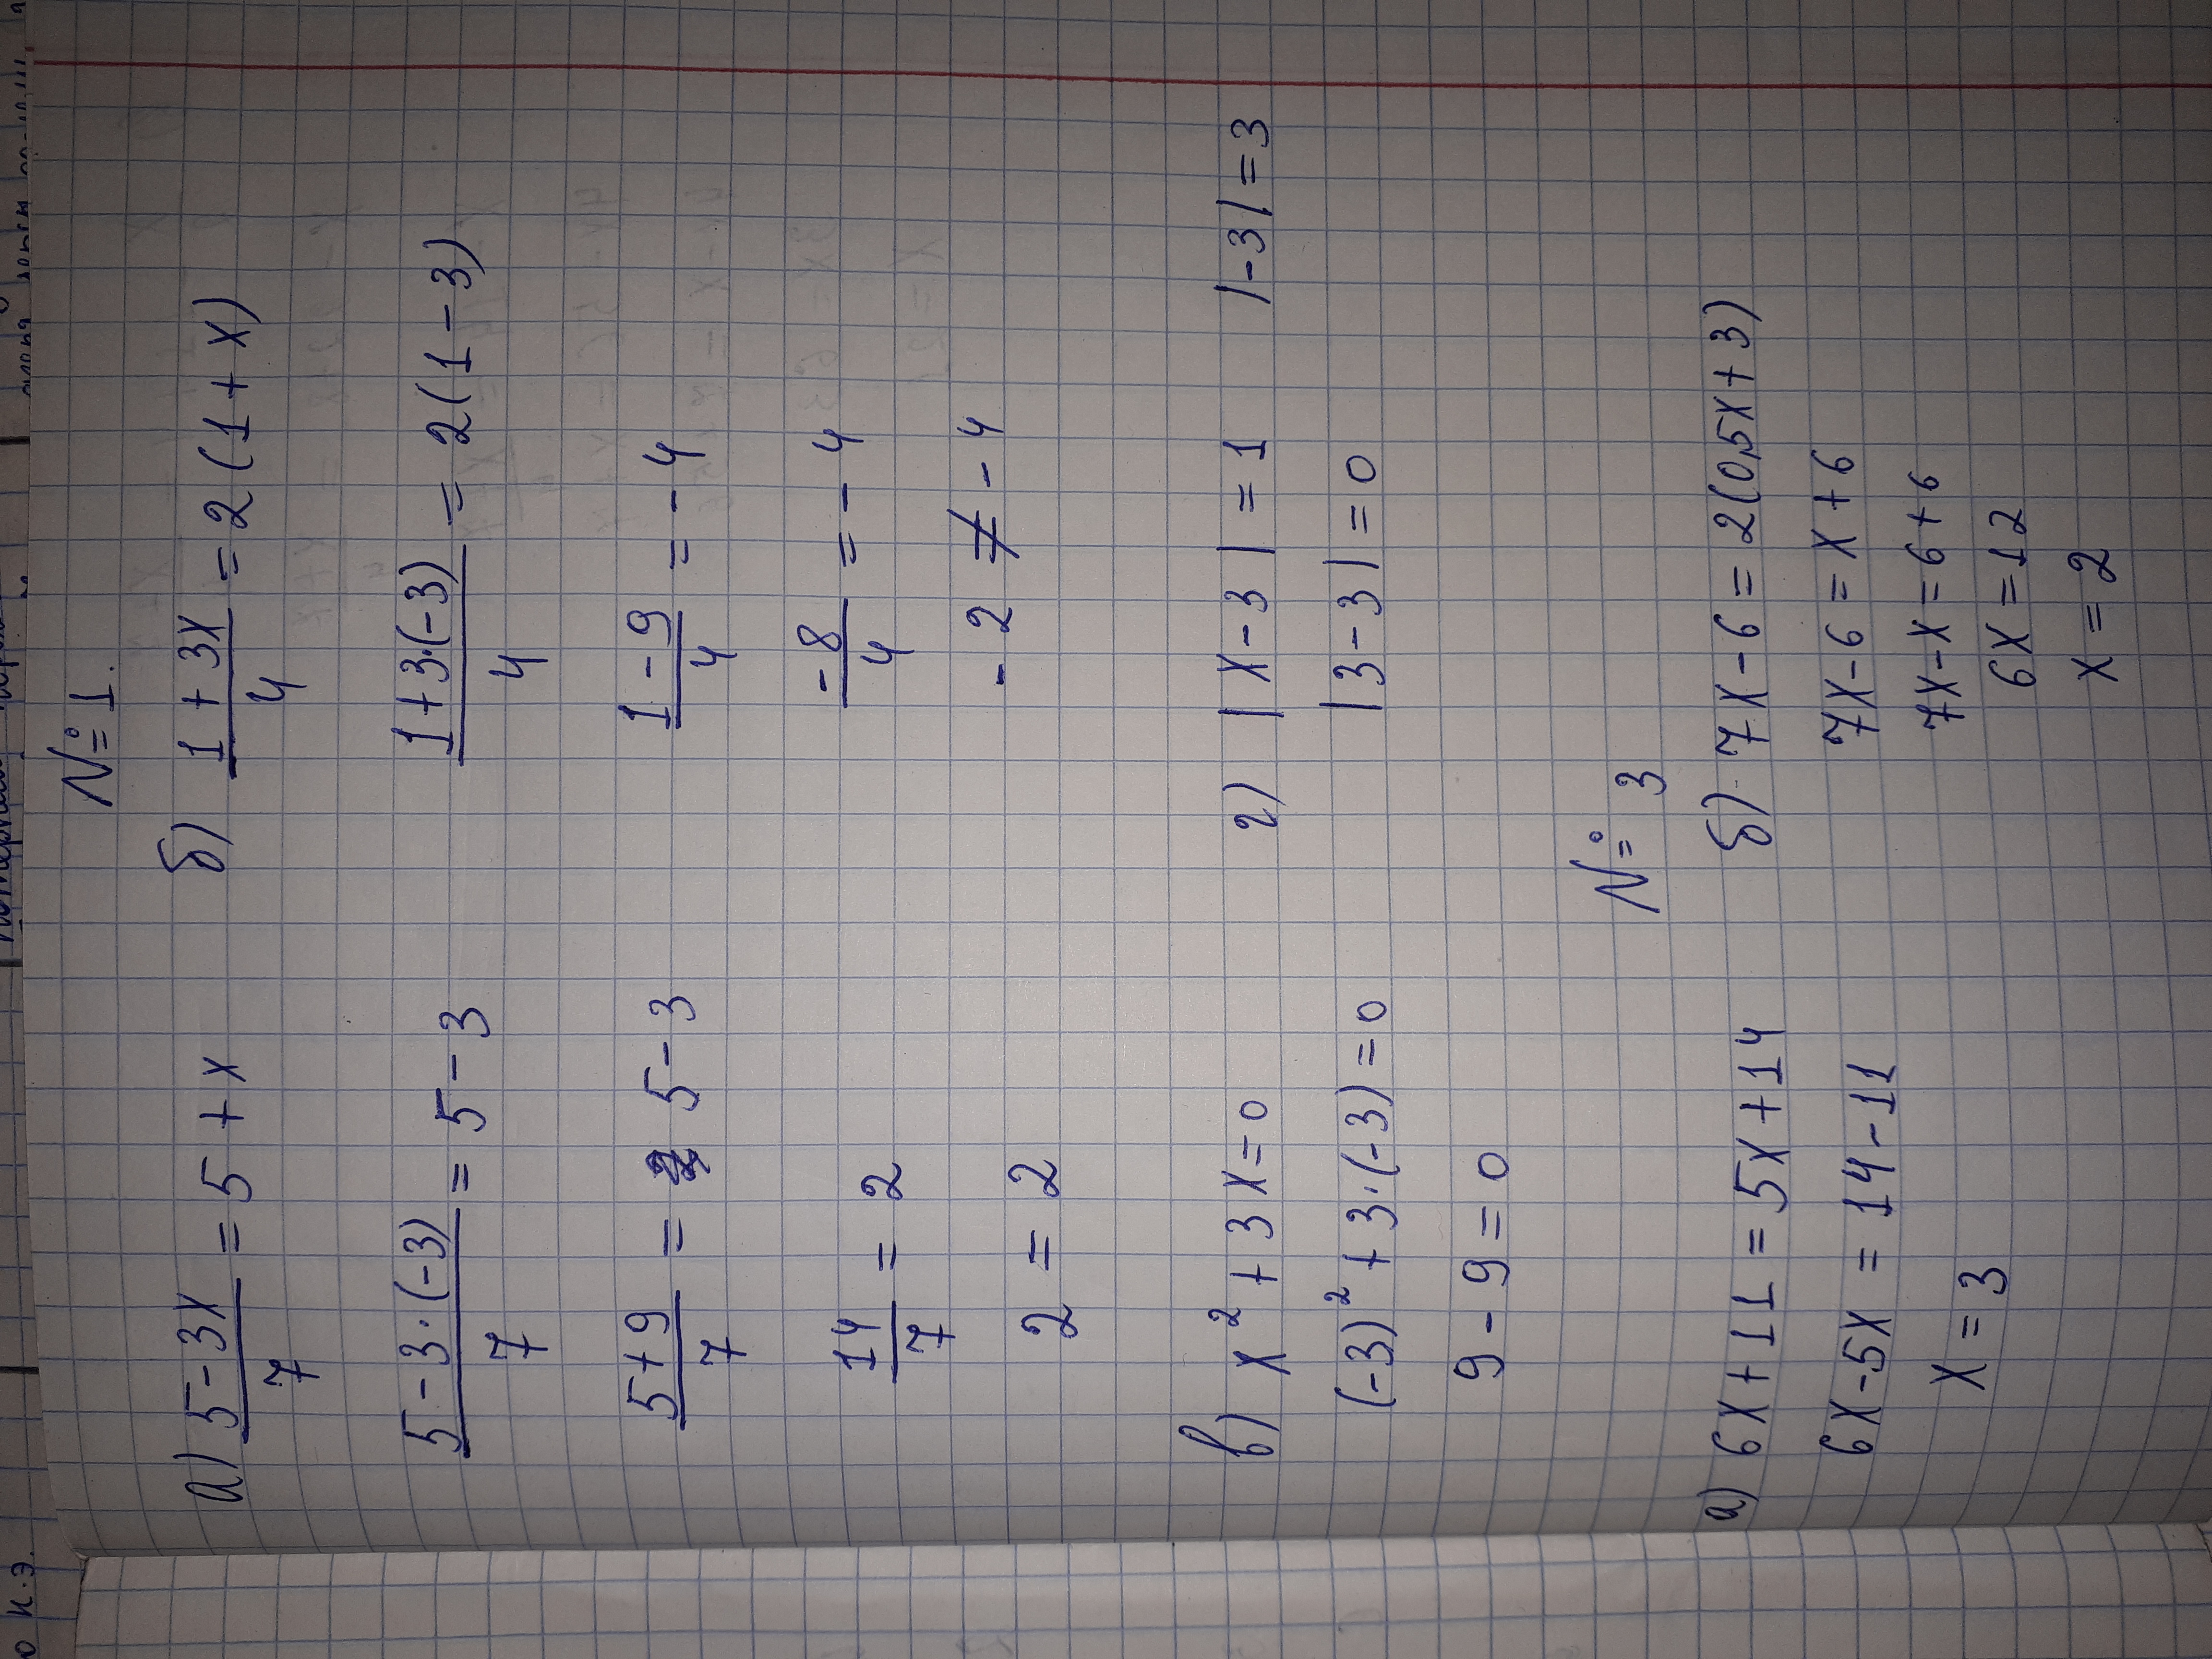 № 1.
а) (5 - 3x)/7 = 5 + x
(5 - 3·(-3))/7 = 5 - 3
(5 + 9)/7 = 5 - 3
14/7 = 2
2 = 2
б) (1 + 3x)/4 = 2(1 + x)
(1 + 3·(-3))/4 = 2(1 - 3)
(1 - 9)/4 = -4
-8/4 = -4
-2 ≠ -4
в) x² + 3x = 0
(-3)² + 3·(-3) = 0
9 - 9 = 0
г) |x - 3| = 1 |-3| = 3
|3 - 3| = 0
№ 3
а) 6x + 11 = 5x + 14
6x - 5x = 14 - 11
x = 3
б) 7x - 6 = 2(0,5x + 3)
7x - 6 = x + 6
7x - x = 6 + 6
6x = 12
x = 2